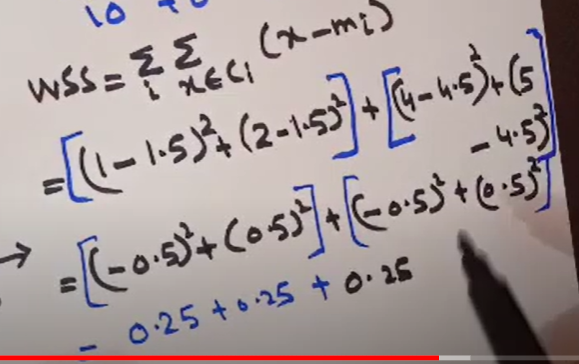 WSS = Σ i Σ x∈Ci (x-mi)
= [(1-1.5)²+(2-1.5)²] + [(4-4.5)²+(5
-4.5)²]
→ = [(-0.5)²+(0.5)²] + [(-0.5)²+(0.5)²]
= 0.25 + 0.25 + 0.25